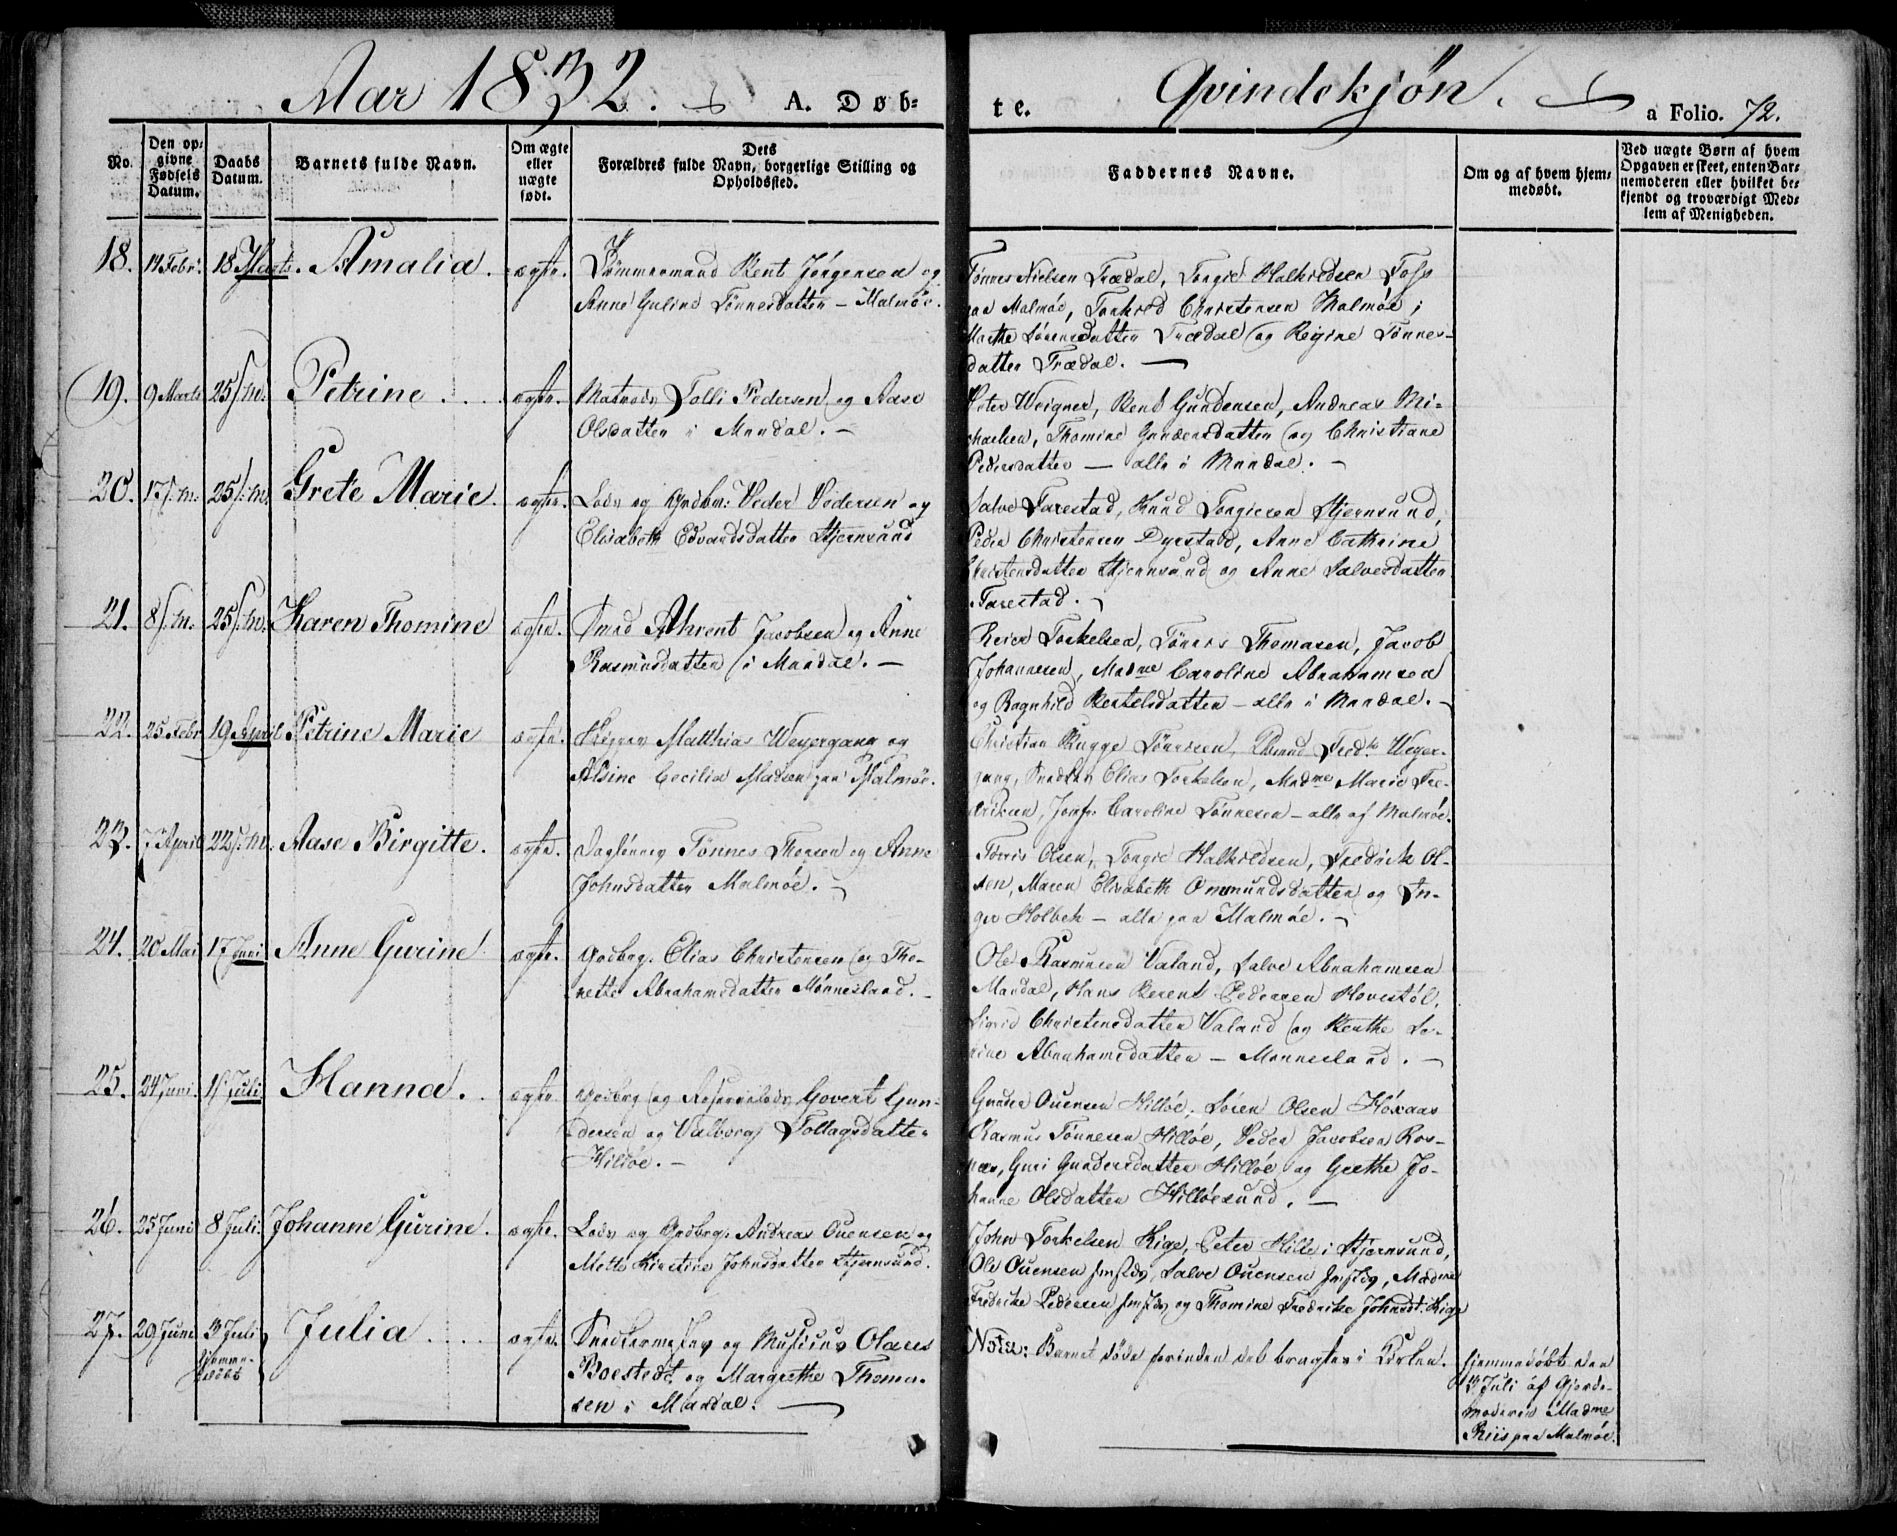 Aar 1832. A. Døb-
te. Qvindekjøn. a Folio. 72.
No.
Den op-
givne
Fødsels
Datum.
Daabs
Datum.
Barnets fulde Navn.
Om ægte
eller
uægte
født.
Dets
Forældres fulde Navn, borgerlige Stilling og
Opholdssted.
Faddernes Navne.
Om og af hvem hjem-
medøbt.
Ved uægte Børn af hvem
Opgaven er skeet, enten Bar-
nemoderen eller hvilket be-
kjendt og troværdigt Med-
lem af Menigheden.
18. 14 Febr. 18 Marts. Amalia. ægte. Tømmermand Bent Jörgensen og
Anne Guline Tönnesdatter - Malmöe.
Tönnes Nielsen Trædal, Tongie Halkildsen Foss
paa Malmöe, Tankred Christensen Malmöe,
Marthe Sörensdatter Trædal og Regine Tönnes-
datter Trædal. -
19. 9 Marts 25 s. M. Petrine. ægte. Matros Tolli Pedersen og Aase
Olsdatter i Mandal. -
Peter Weigner, Bent Gundersen, Andreas Mi-
chaelsen, Thomine Gundersdatter og Christiane
Pedersdatter - alle i Mandal. -
20. 17 s. M. 25 s. M. Grete Marie. ægte. Lods og Grdbr: Peder Pedersen og
Elisabeth Edvardsdatter Stjernsund
Salve Farestad, Knud Tongiesen Stjernsund,
Peder Christensen Dyrstad, Anne Cathrine
Christensdatter Stjernsund og Anne Salvesdatter
Farestad.
21. 8 s. M. 25 s. M. Karen Thomine ægte. Smed Ahrent Jacobsen og Anne
Rasmusdatter i Mandal. -
Reier Torkelsen, Tönnes Thomasen, Jacob
Johannesen, Madme Caroline Abrahamsen
og Ragnhild Bertelsdatter - alle i Mandal. -
22. 25 Febr 19 April Petrine Marie ægte. Skipper Matthias Weyergang og
Alsine Cecilia Madsen paa Malmöe.
Christian Bugge Tönnesen, Fred. Weyer-
gang, Snedker Elias Torkelsen, Madme Marie Fre-
driksen, Jomfr. Caroline Tönnesen - alle af Malmöe.
23. 7 April 22 s. M. Aase Birgitte. ægte. Daglönner Tönnes Thorsen og Anne
Johnsdatter Malmöe.
Torris Olsen, Tongie Halkildsen, Fredrick Ol-
sen, Maren Elisabeth Ommundsdatter og In-
ger Holbek - alle paa Malmöe.
24. 20 Mai 17 Juni Anne Gurine ægte. Grdbrg. Elias Christensen og Tho-
rette Abrahamsdatter Mönnesland. -
Ole Rasmusen Valand, Salve Abrahamsen
Mandal, Hans Berent Pedersen Hovestöl,
Sigrid Christensdatter Valand og Benthe So-
rine Abrahamsdatter - Monnesland. -
25. 24 Juni. 1 Juli Hanna. ægte Grdbrg og Reservelods Govert Gun-
dersen og Valborg Tollagsdatter
Hilløe. -
Gunder Ouensen Hillöe, Sören Olsen Höxaas
Rasmus Tönnesen Hillöe, Peder Jacobsen Ros-
næs, Guri Gundersdatter Hillöe og Grethe Jo-
hanne Olsdatter Hillöesund. -
26. 25 Juni 8 Juli. Johanne Gurine. ægte. Lods og Grdbrg: Andreas Ouensen og
Mette Kirstine Johnsdatter Stjernsund.
John Torkelsen Rige, Peter Hille i Stjernsund,
Ole Ouensen smstds, Salve Ouensen smstds, Madme
Fredrike Pedersen smstds og Thomine Fredrike Johnsdt: Rige
27. 29 Juni 3 Juli
hjemme-
døbt
Julia. ægte. Snedkermester og Musicus Olaus
Boestedt og Margrethe Thoma-
sen i Mandal. -
Nota: Barnet döde forinden det bragtes i Kirken.
hjemmedöbt den
3 Juli af Gjorde-
moderen Madme
Riis paa Malmöe.